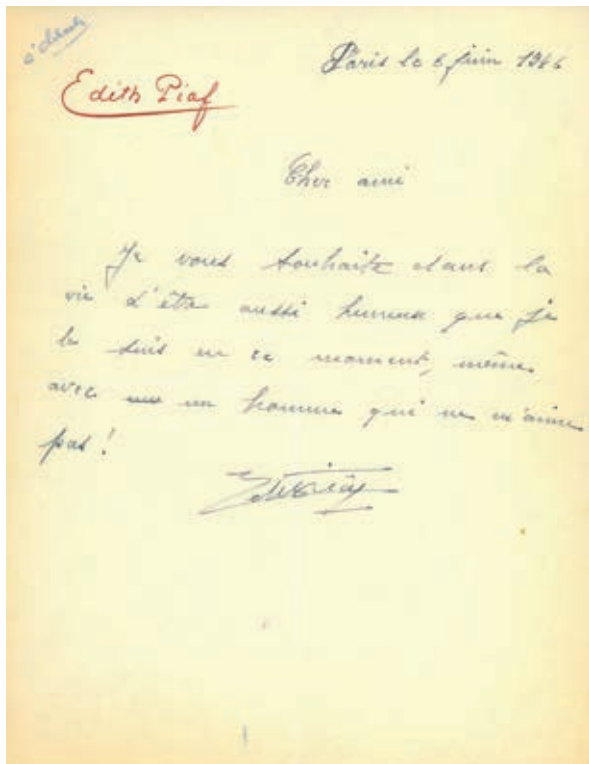 Edith Piaf
Paris le 6 juin 1946
Cher ami
Je vous souhaite dans la
vie d'être aussi heureux que je
le suis en ce moment, même
avec un homme qui ne m'aime
pas!